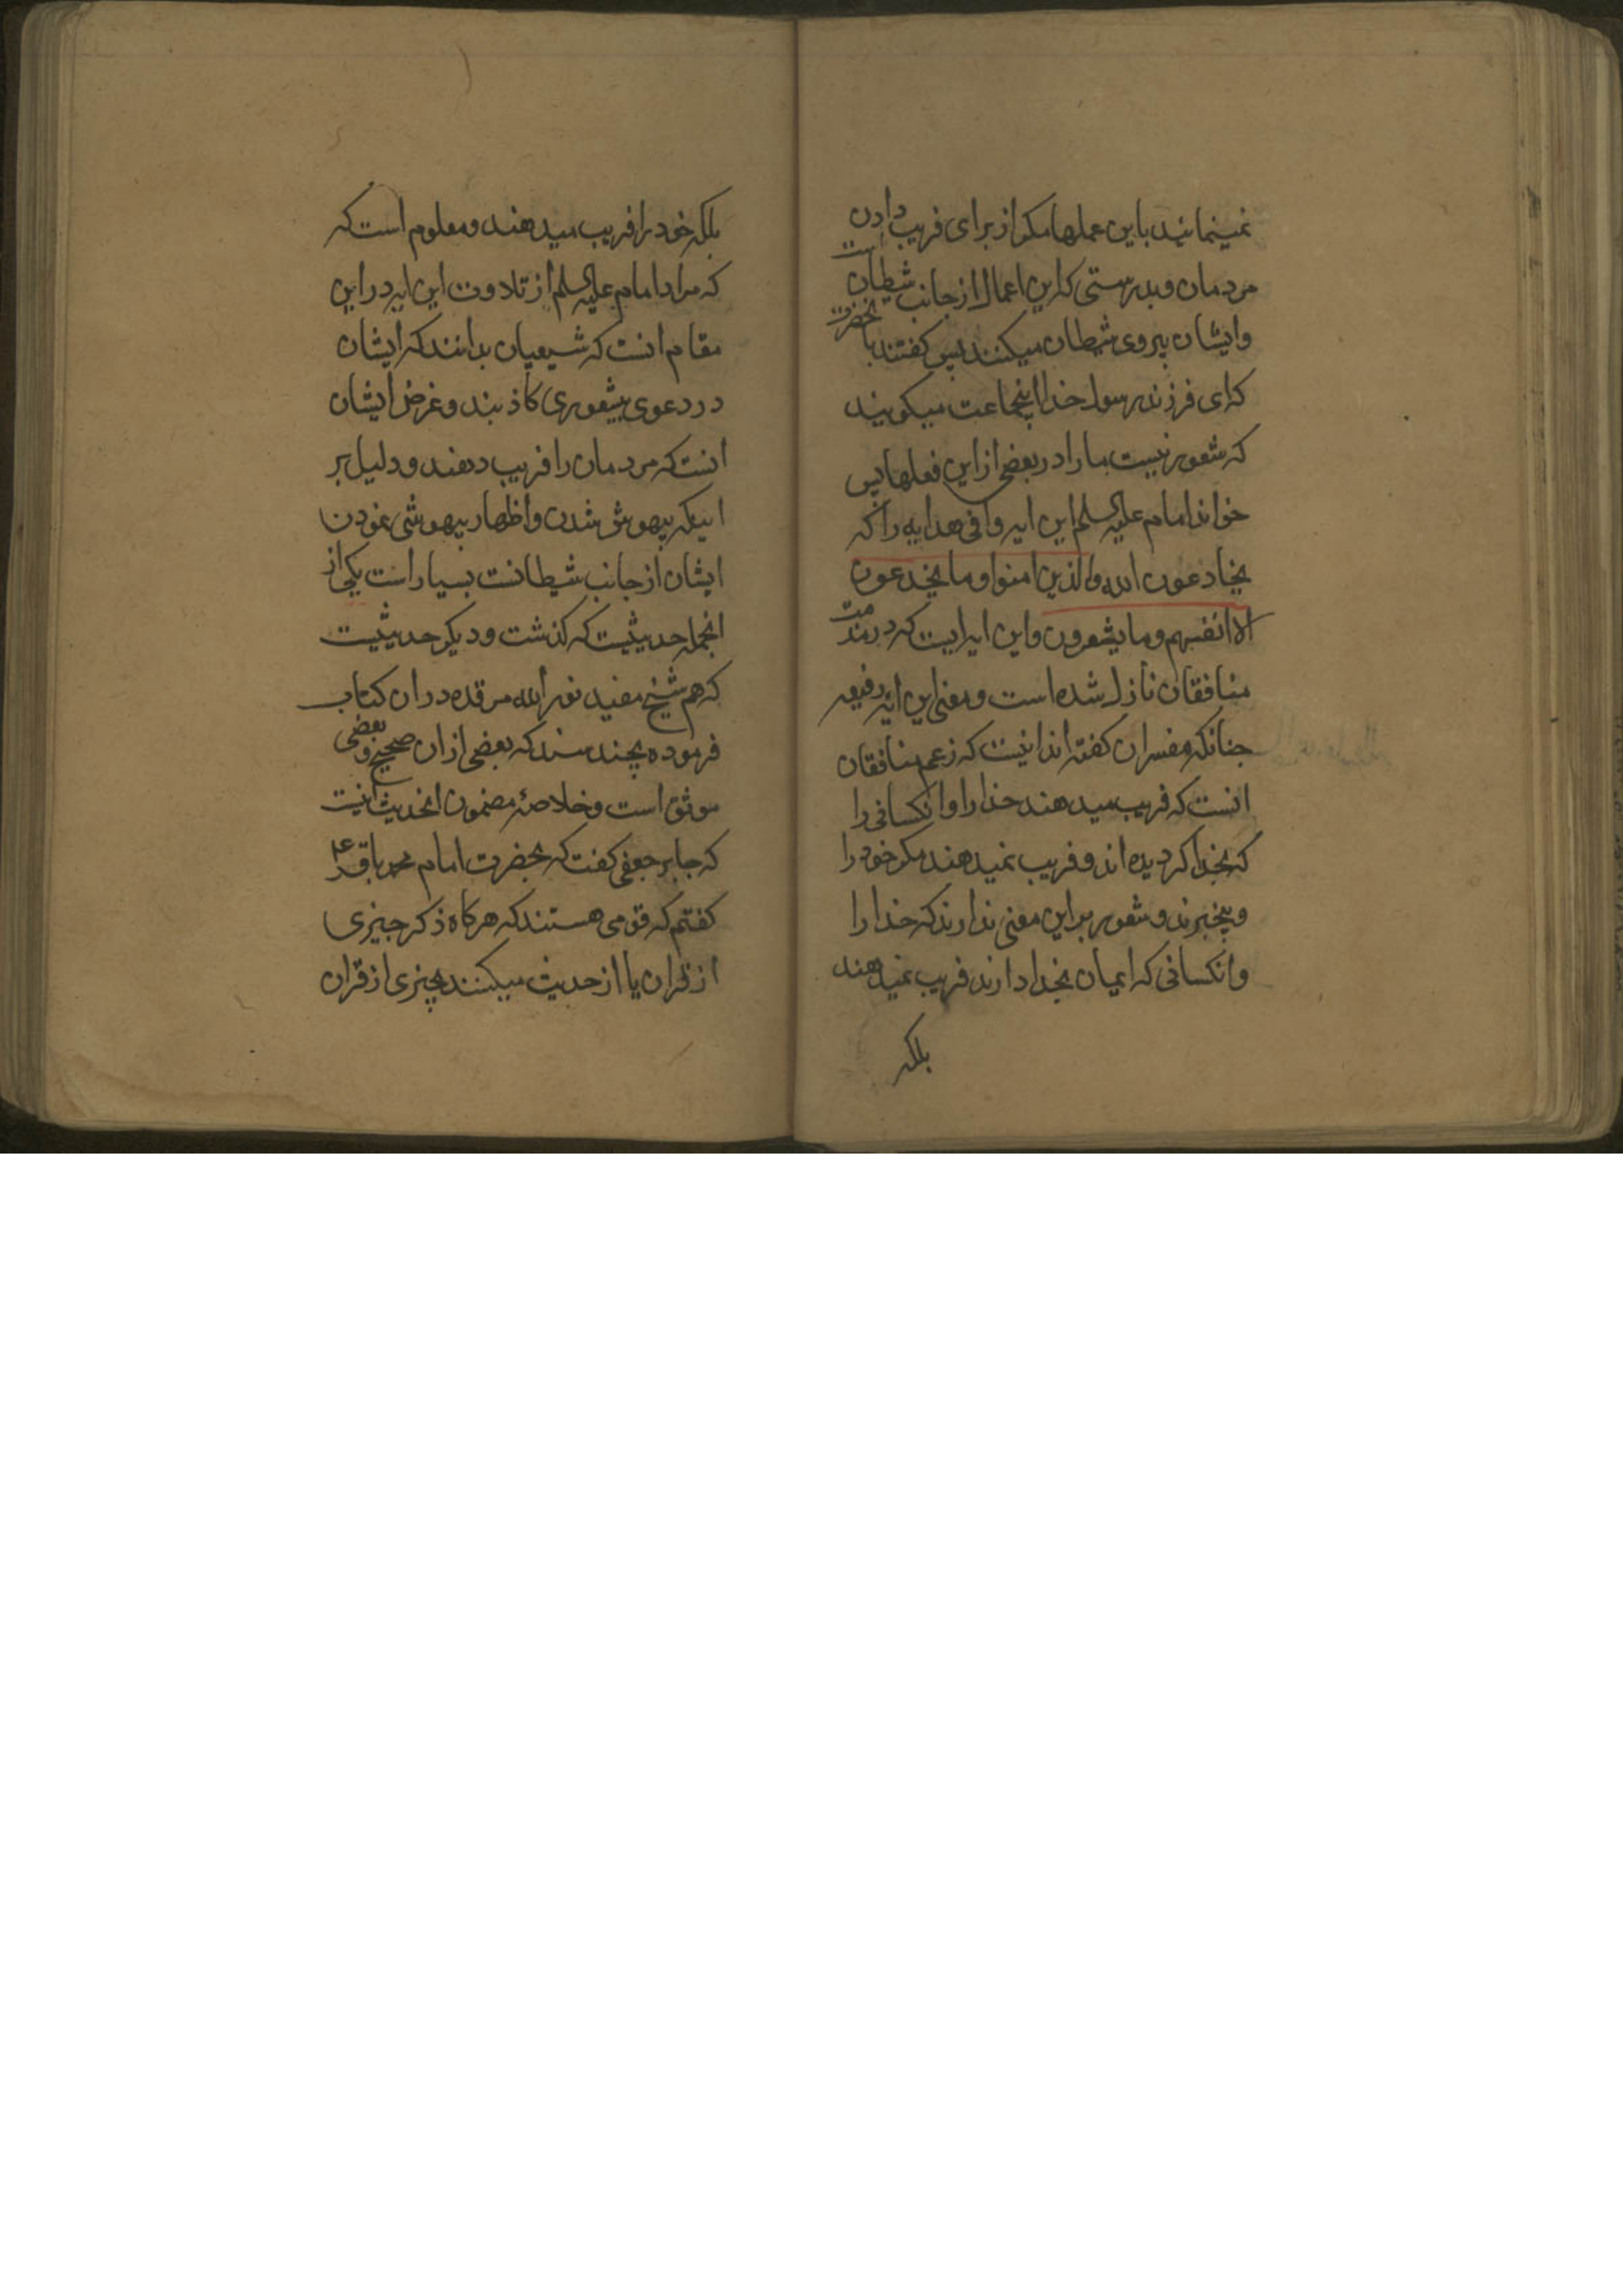 نمینمایند باین عملها مکر از برای فریب دادن
مردمان و بدرستی که این اعمال از جانب شیطان است
و ایشان پیروی شیطان میکنند پس کفتند بانحضرت
که ای فرزند رسول خدا اینجماعت میکویند
که شعور نیست ما را در بعضی از این فعلها پس
خواند امام علیه السلم این ایه وافی هدایه را که
یخادعون الله والذین امنوا وما یخدعون
الا انفسهم وما یشعرون و این ایه ایست که در مذمت
منافقان نازل شده است و معنی این ایه رفیعه
جنانکه مفسران کفته اند اینست که زعم منافقان
انست که فریب میدهند خدا را و انکسانی را
که بخدا کردیده اند و فریب نمیدهند مکر خود را
و بیخبرند و شعور بر این معنی ندارند که خدا را
و انکسانی که ایمان بخدا دارند فریب نمیدهند
بلکه
بلکه خود را فریب میدهند و معلوم است که
که مراد امام علیه السلم از تلاوت این ایه در این
مقام انست که شیعیان بدانند که ایشان
در دعوی بیشعوری کاذبند و غرض ایشان
انست که مردمان را فریب دهند و دلیل بر
اینکه بیهوش شدن و اظهار بیهوشی نمودن
ایشان از جانب شیطانست بسیار است یکی از
انجمله حدیثیست که کذشت و دیکر حدیثیست
که هم شیخ مفید نور الله مرقده در ان کتاب
فرموده بچند سند که بعضی از ان صحیح و بعضی
موثق است و خلاصهٔ مضمون انحدیث اینست
که جابر جعفی کفت که بحضرت امام محمد باقر ع
کفتم که قومی هستند که هرکاه ذکر جیزی
از قران یا از حدیث میکنند بچیزی از قران